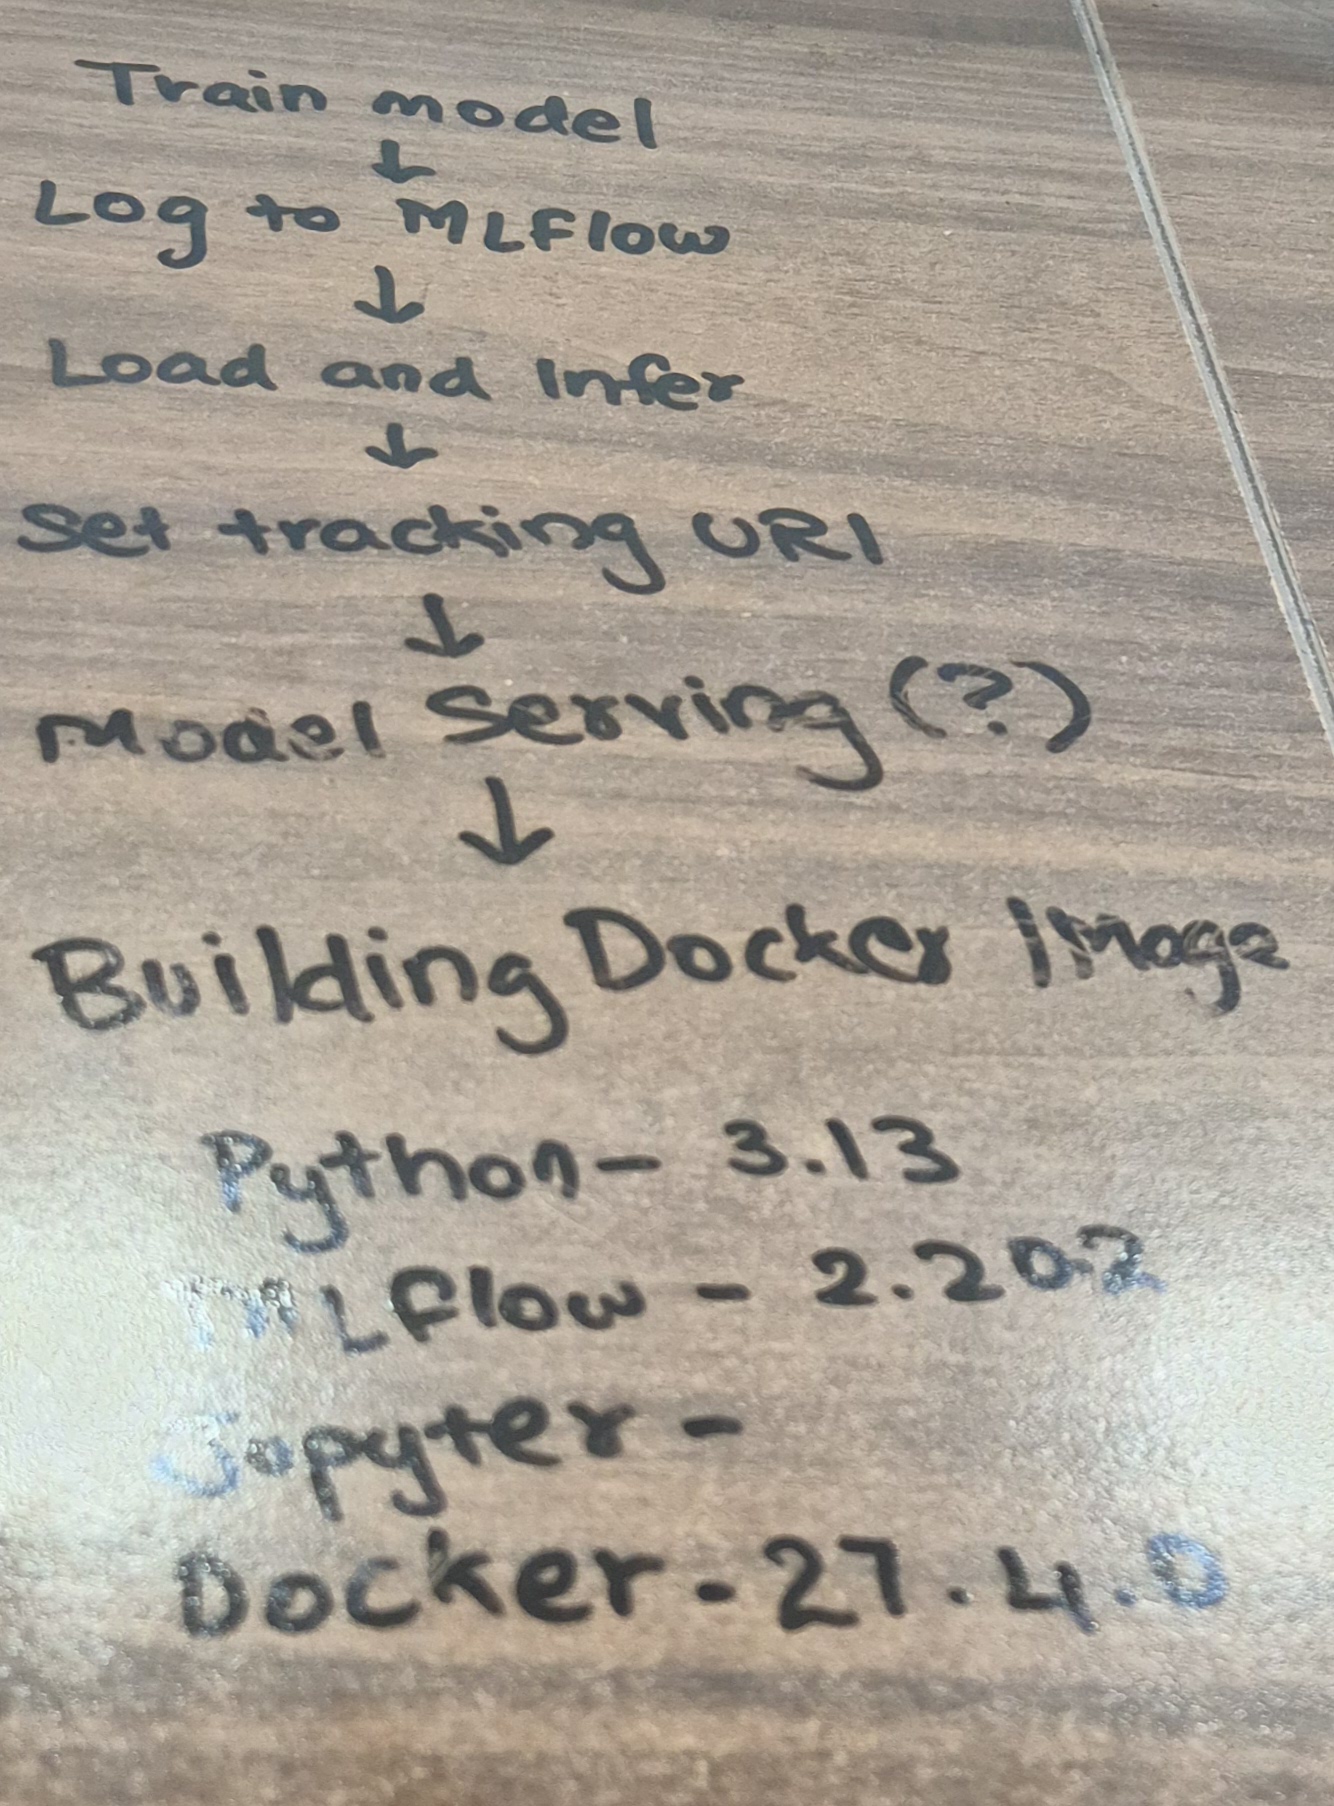 Train model
↓
Log to MLFlow
↓
Load and Infer
↓
Set tracking URI
↓
Model Serving (?)
↓
Building Docker Image
Python - 3.13
MLFlow - 2.20.2
Jupyter -
Docker - 27.4.0